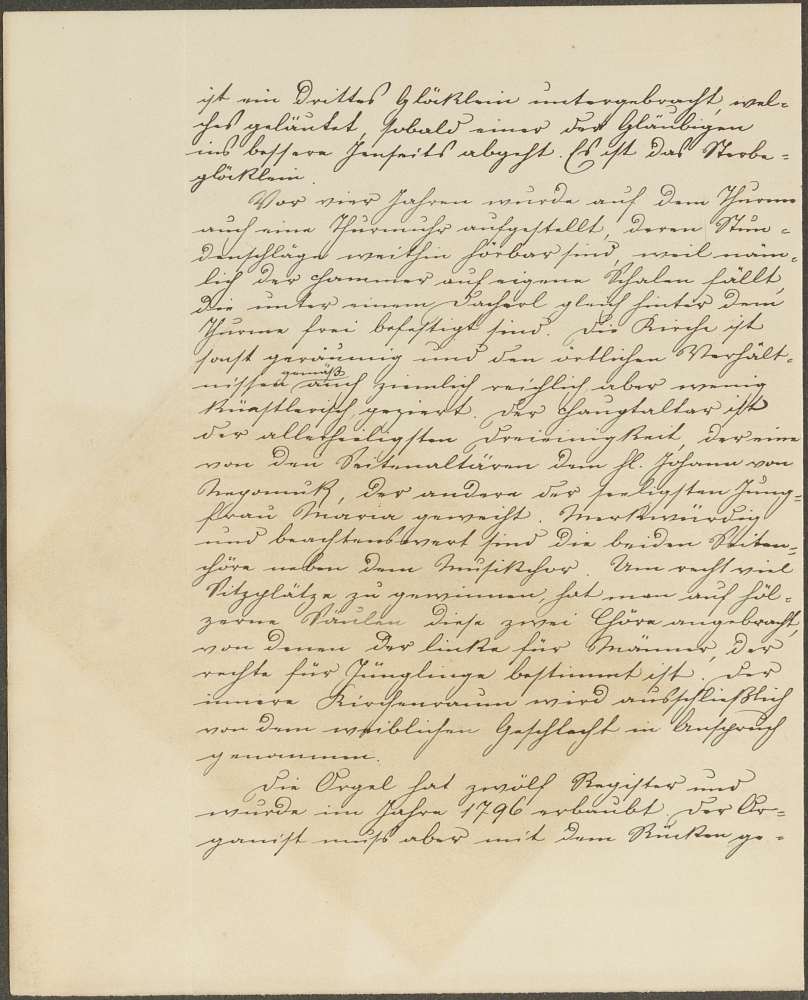 ist ein drittes Glöcklein untergebracht, wel-
ches geläutet, sobald einer der Gläubigen
ins bessere Jenseits abgeht. Es ist das Sterbe-
glöcklein.
Vor vier Jahren wurde auf dem Thurme
auch eine Thurmuhr aufgestellt, deren Stun-
denschläge weithin hörbar sind, weil näm-
lich der Hammer auf eigene Schalen fällt,
die unter einem Dacherl gleich hinter dem
Thurme frei befestigt sind. Die Kirche ist
sonst geräumig und den örtlichen Verhält-
nissen gemäß auch ziemlich reichlich aber wenig
künstlerisch geziert. Der Hauptaltar ist
der allerheiligsten Dreieinigkeit, der eine
von den Seitenaltären dem hl. Johann von
Nepomuk, der andere der seeligsten Jung-
frau Maria geweiht. Merkwürdig
und beachtenswert sind die beiden Seiten-
chöre neben dem Musikchor. Um recht viel
Sitzplätze zu gewinnen, hat man auf höl-
zerne Säulen diese zwei Chöre angebracht,
von denen der linke für Männer, der
rechte für Jünglinge bestimmt ist. Der
innere Kirchenraum wird ausschließlich
von dem weiblichen Geschlecht in Anspruch
genommen.
Die Orgel hat zwölf Register und
wurde im Jahre 1796 erbaubt. Der Or-
ganist muß aber mit dem Rücken ge-